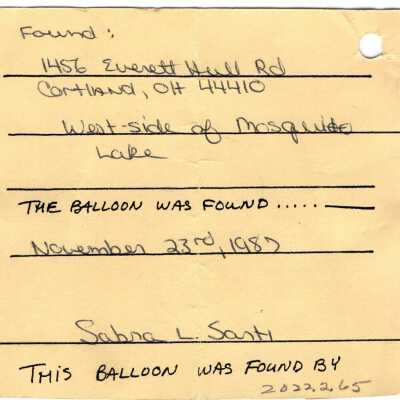 Found:
1456 Everett Hull Rd
Cortland, OH 44410
West-side of Mosquito
Lake
THE BALLOON WAS FOUND.....
November 23rd, 1987
Sabra L. Sarti
THIS BALLOON WAS FOUND BY
2022.2.65